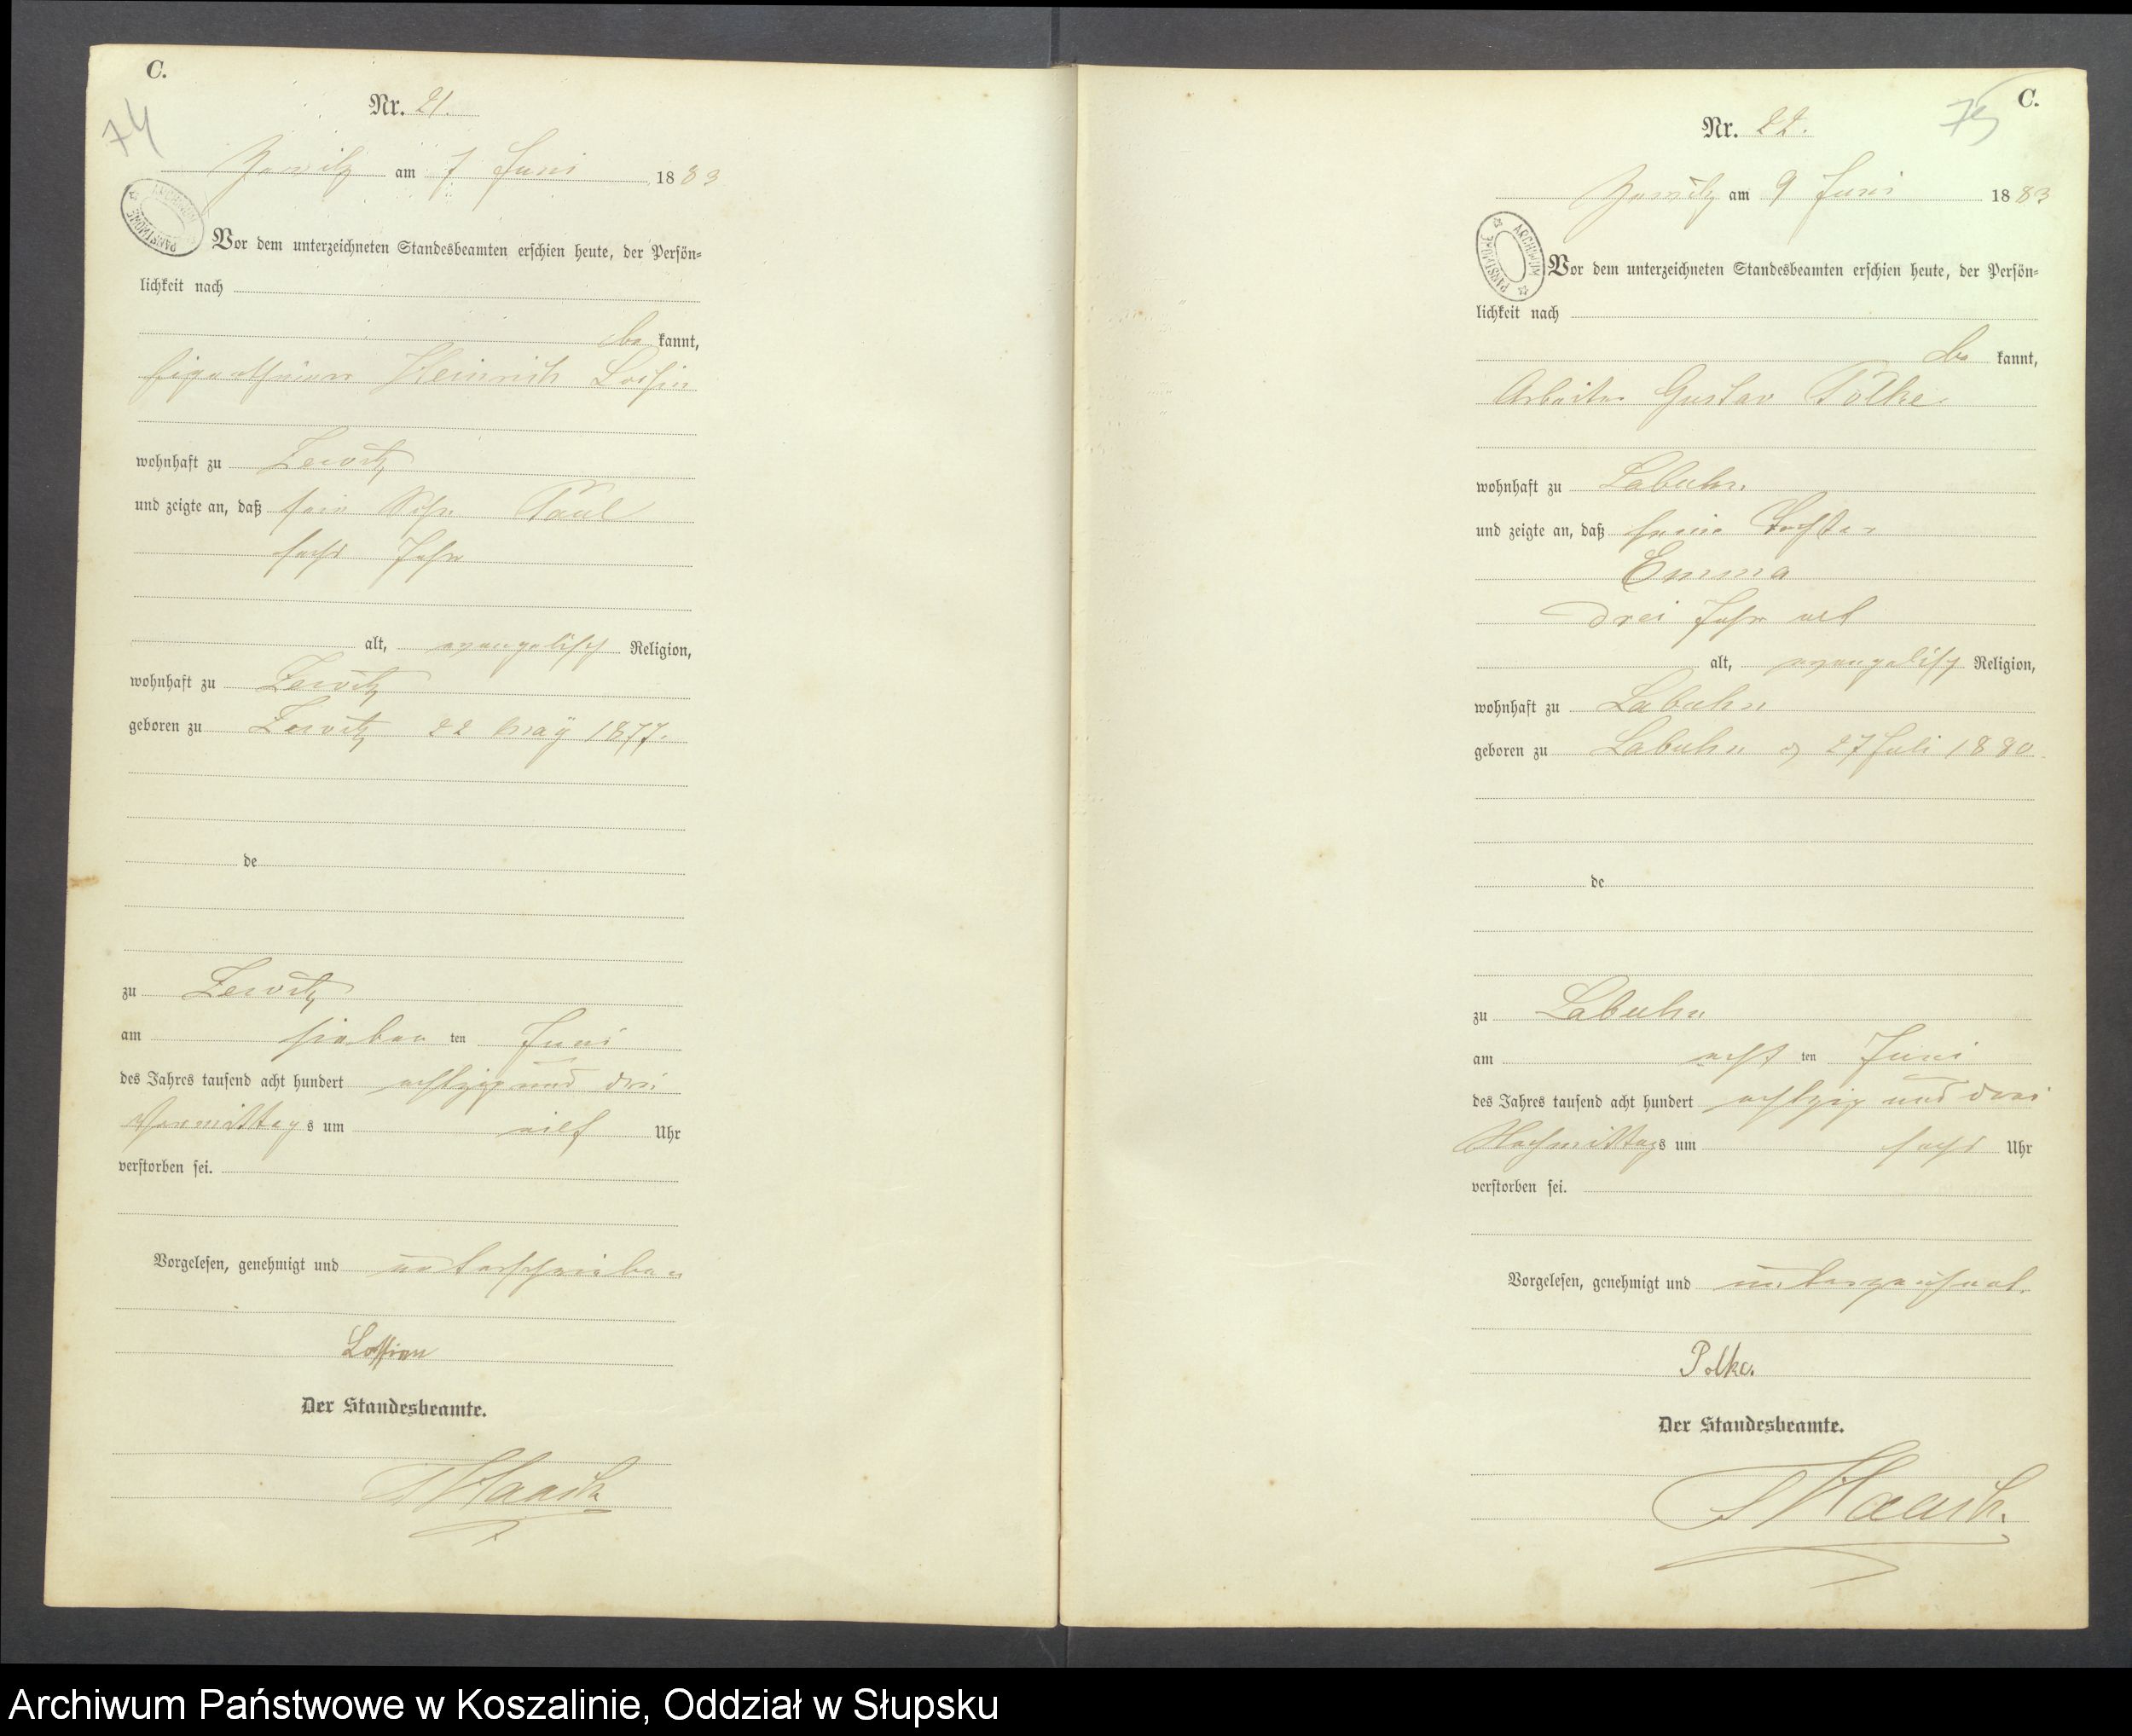 C.
74
Nr. 21.
am 7 Juni 1883
ARCHIWUM PAŃSTWOWE
Vor dem unterzeichneten Standesbeamten erschien heute, der Persön-
lichkeit nach
be kannt,
Eigenthümer Heinrich Lossin
wohnhaft zu Zewitz
und zeigte an, daß sein Sohn Paul
sechs Jahr
alt, evangelisch Religion,
wohnhaft zu Zewitz
geboren zu Zewitz 22 May 1877.
de
zu Zewitz
am sieben ten Juni
des Jahres tausend acht hundert achtzig und drei
Vormittags um eilf Uhr
verstorben sei.
Vorgelesen, genehmigt und unterschrieben
Lossien
Der Standesbeamte.
C.
75
Nr. 22.
am 9 Juni 1883
ARCHIWUM PAŃSTWOWE
Vor dem unterzeichneten Standesbeamten erschien heute, der Persön-
lichkeit nach
be kannt,
Arbeiter Gustav Polke
wohnhaft zu Labuhn
und zeigte an, daß seine Tochter
Emma
drei Jahr alt
alt, evangelisch Religion,
wohnhaft zu Labuhn
geboren zu Labuhn 27 Juli 1880
de
zu Labuhn
am acht ten Juni
des Jahres tausend acht hundert achtzig und drei
Nachmittags um sechs Uhr
verstorben sei.
Vorgelesen, genehmigt und unterzeichnet.
Polke.
Der Standesbeamte.
Archiwum Państwowe w Koszalinie, Oddział w Słupsku